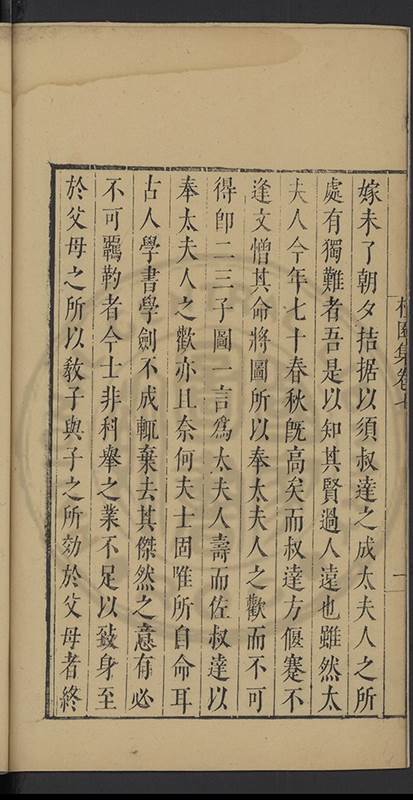 嫁未了朝夕拮据以須叔達之成太夫人之所
處有獨難者吾是以知其賢過人遠也雖然太
夫人今年七十春秋旣高矣而叔達方偃蹇不
逢文憎其命將圖所以奉太夫人之歡而不可
得卽二三子圖一言爲太夫人壽而佐叔達以
奉太夫人之歡亦且奈何夫士固唯所自命耳
古人學書學劍不成輒棄去其傑然之意有必
不可羈靮者今士非科舉之業不足以致身至
於父母之所以敎子與子之所効於父母者終